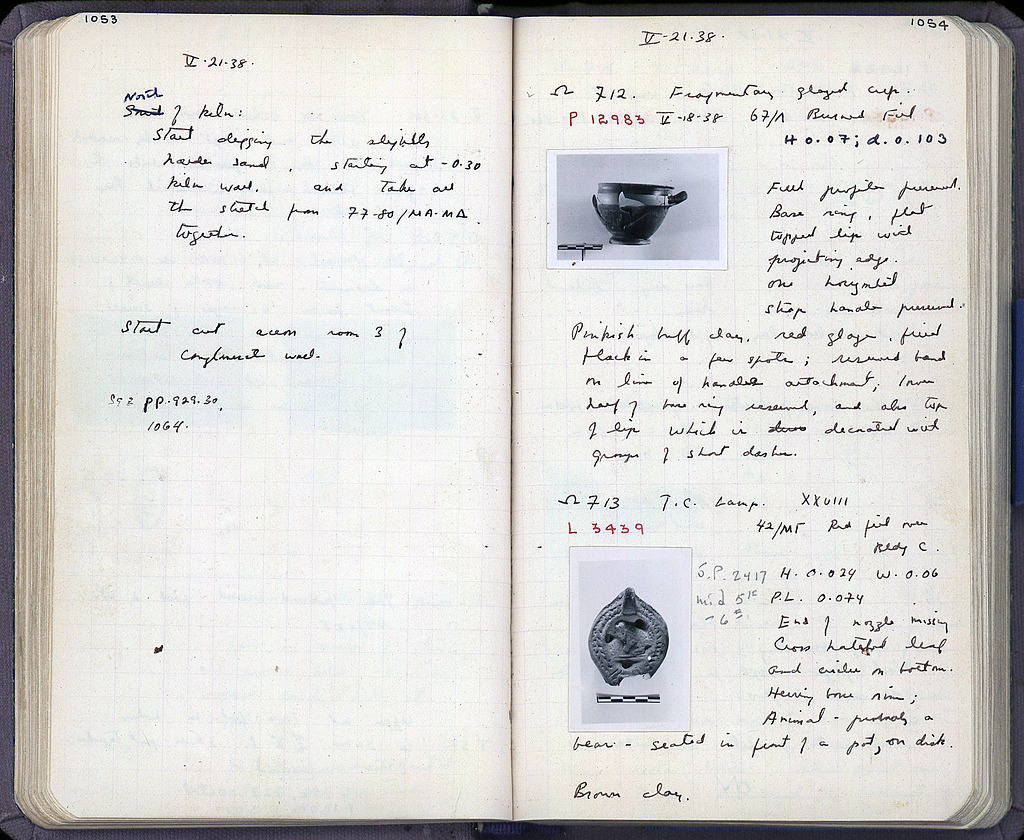 1053
V·21·38.
North
South of kiln:
Start digging the slightly
harder sand, starting at -0.30
kiln wall. and take all
the stretch from 77-80/MA-MΔ
together.
Start cut across room 3 of
Conglomerate wall.
See pp. 929.30,
1064.
1054
V-21·38.
Ω 712. Fragmentary glazed cup.
P 12983 V-18-38 67/Λ Burned Fill
H 0.07; d. 0.103
Full profile preserved.
Base ring, flat
topped lip with
projecting edge.
One horizontal
strap handle preserved.
Pinkish buff clay, red glaze, fired
black in a few spots; reserved band
on line of handle attachment; lower
half of base ring reserved, and also top
of lip which is decorated with
groups of short dashes.
Ω 713 T.C. Lamp. XXVIII
L 3439 42/ΜΓ Red fill over
Bldg C.
S.P. 2417 H. 0.024 W. 0.06
mid 5th P.L. 0.074
- 6th
End of nozzle missing
Cross hatched leaf
and circles on bottom.
Herring bone rim;
Animal - probably a
bear - seated in front of a pot, on disk.
Brown clay.